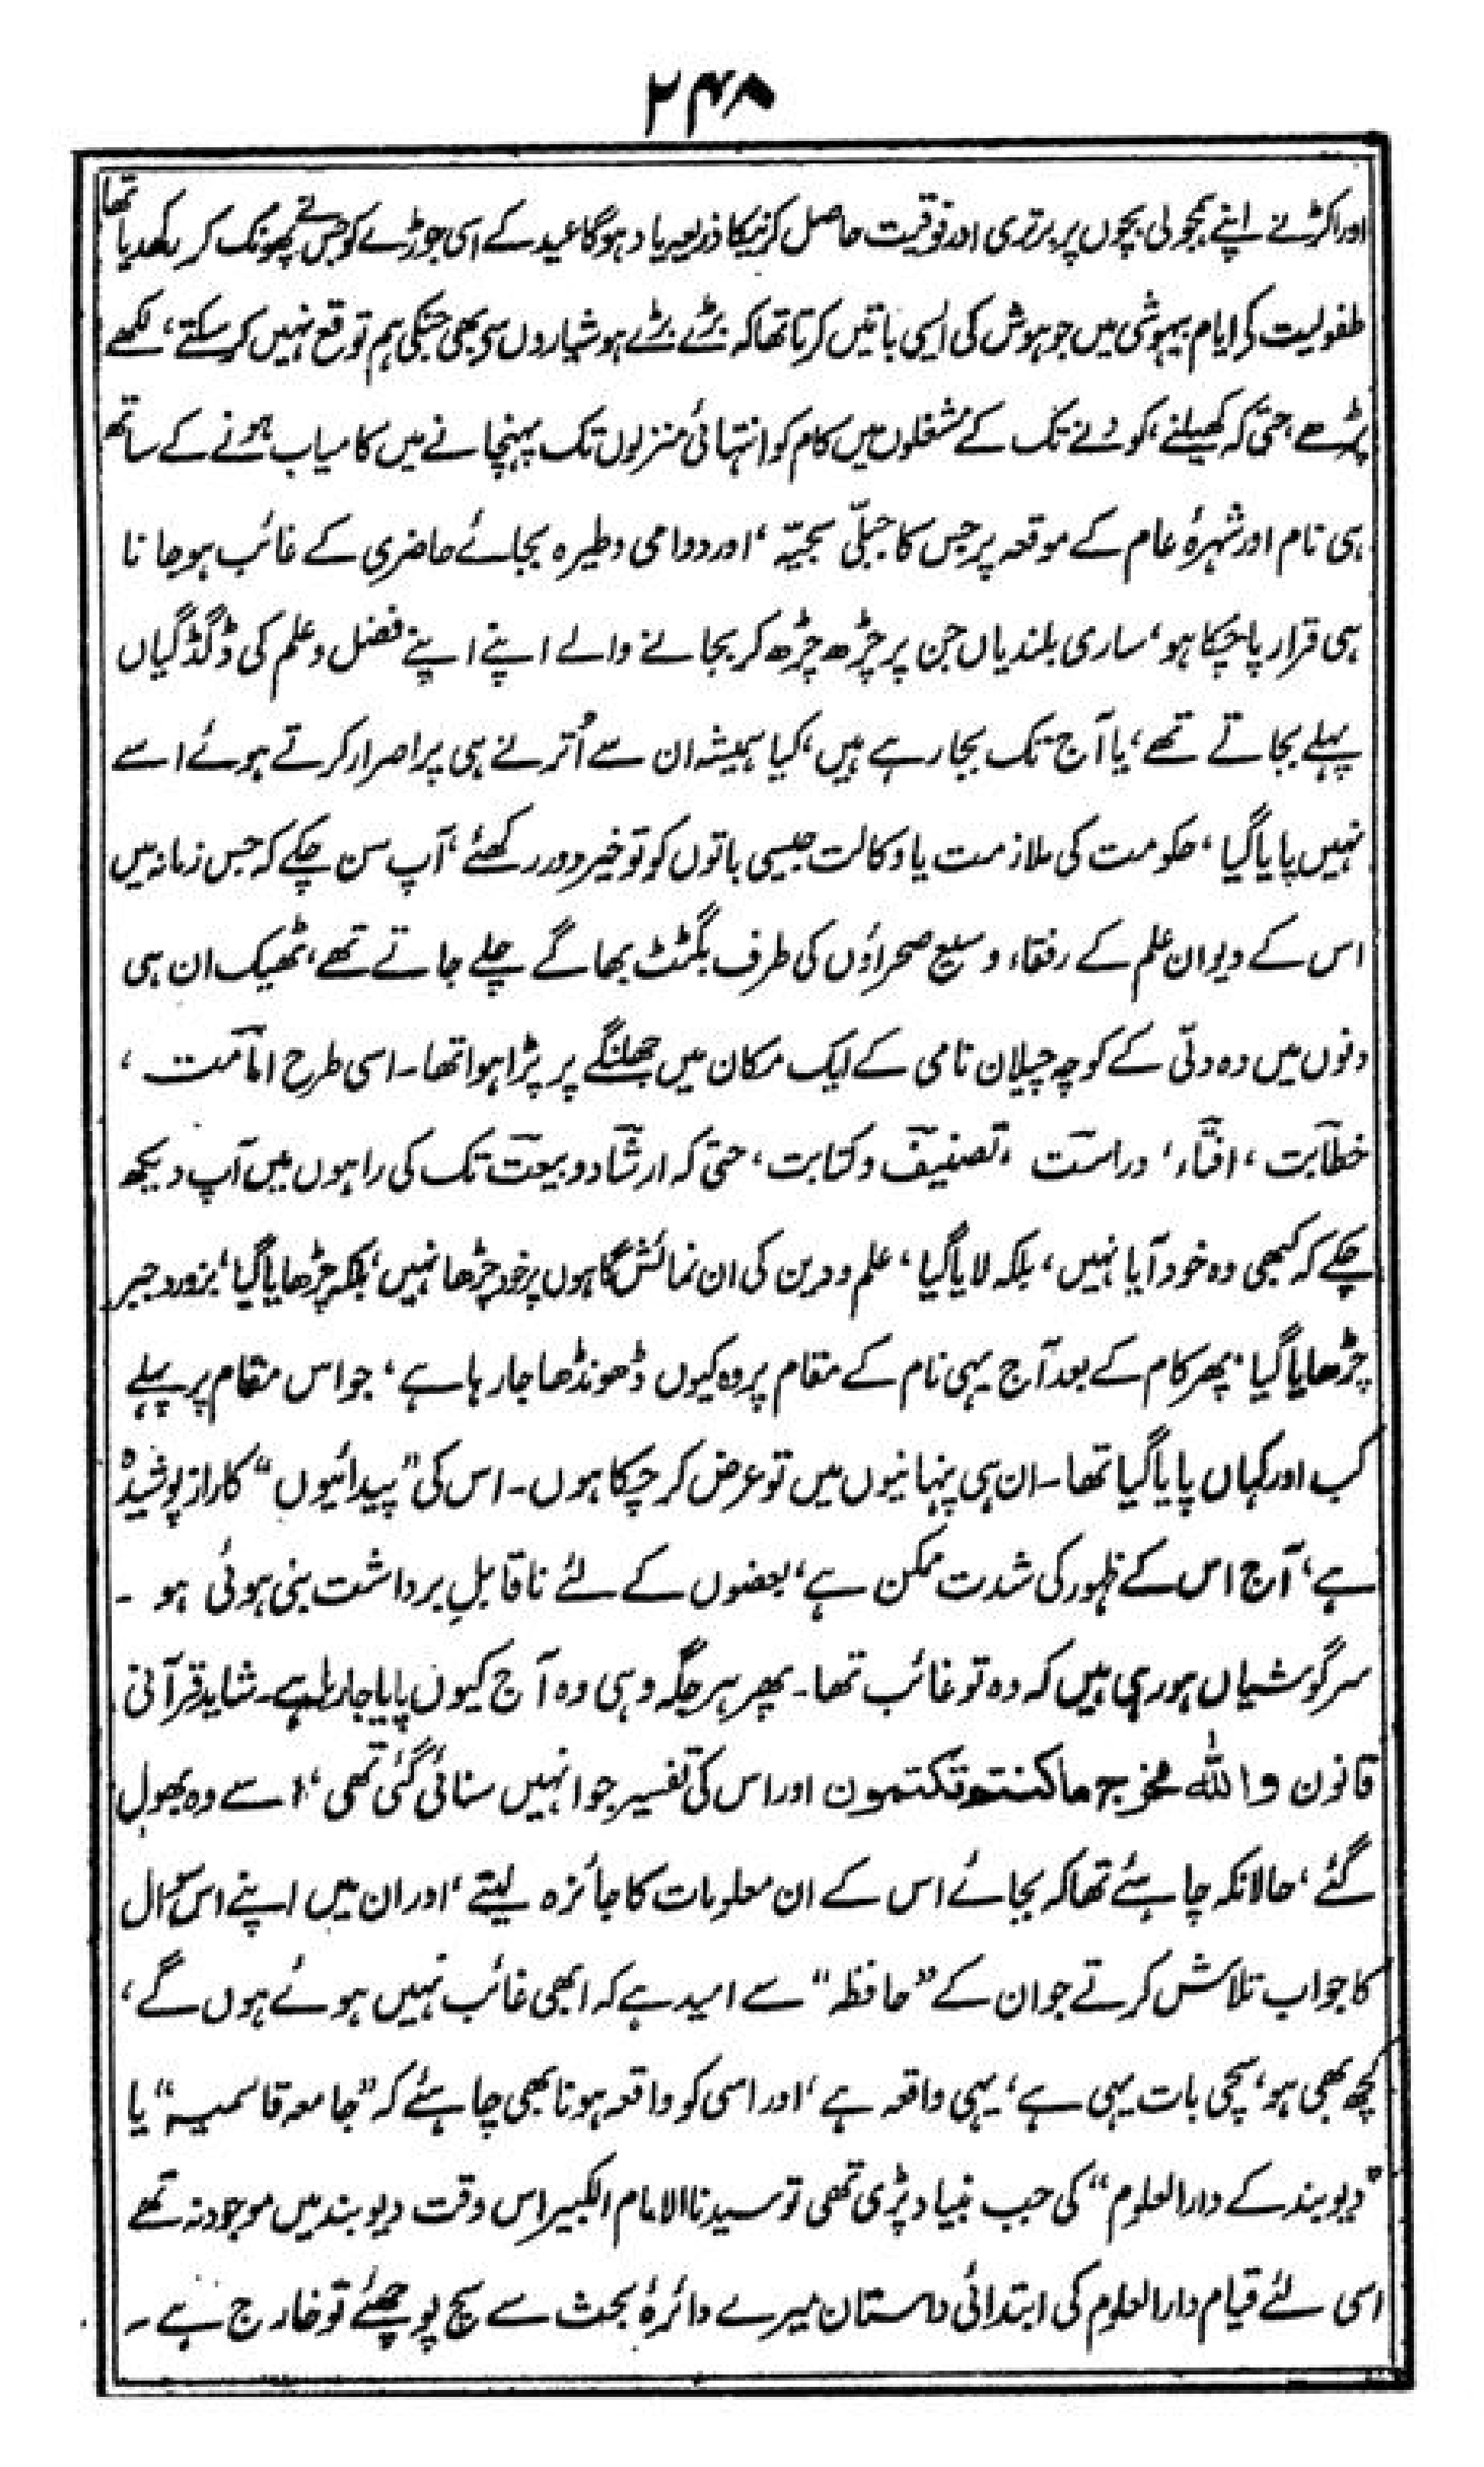 ۲۴۸
اور اکڑنے اپنے ہمجولی بچوں پر برتری اور فوقیت حاصل کرنیکا ذریعہ یاد ہوگا عید کے اسی جوڑے کو جس نے پھونک کر رکھدیا تھا
طفولیت کی ایام بیہوشی میں جو ہوش کی ایسی باتیں کرتا تھا کہ بڑے بڑے ہوشیاروں سی بھی جنکی ہم توقع نہیں کرسکتے، لکھے
پڑھے، حتی کہ کھیلنے، کودنے تک کے مشغلوں میں کام کو انتہائی منزلوں تک پہنچانے میں کامیاب ہونے کے ساتھ
ہی نام اور شہرۂ عام کے موقعہ پر جس کا جبلّی سجیّہ، اور دوامی وطیرہ بجائے حاضری کے غائب ہوجانا
ہی قرار پا چکا ہو، ساری بلندیاں جن پر چڑھ چڑھ کر بجانے والے اپنے اپنے فضل و علم کی ڈگڈگیاں
پہلے بجاتے تھے، یا آج تک بجا رہے ہیں، کیا ہمیشہ ان سے اُترنے ہی پر اصرار کرتے ہوئے اسے
نہیں پایا گیا، حکومت کی ملازمت یا وکالت جیسی باتوں کو تو خیر دور رکھئے، آپ سن چکے کہ جس زمانہ میں
اس کے دیوان علم کے رفقاء وسیع صحراؤں کی طرف بگٹٹ بھاگے چلے جاتے تھے، ٹھیک ان ہی
دنوں میں وہ دلّی کے کوچہ چیلان نامی کے ایک مکان میں جھلنگے پر پڑا ہوا تھا۔ اسی طرح امامت،
خطابت، افتاء، دراست، تصنیف و کتابت، حتی کہ ارشاد و بیعت تک کی راہوں میں آپ دیکھ
چکے کہ کبھی وہ خود آیا نہیں، بلکہ لایا گیا، علم و دین کی ان نمائش گاہوں پر خود چڑھا نہیں، بلکہ چڑھایا گیا، بزور و جبر
چڑھایا گیا، پھر کام کے بعد آج یہی نام کے مقام پر وہ کیوں ڈھونڈھا جا رہا ہے، جو اس مقام پر پہلے
کب اور کہاں پایا گیا تھا۔ ان ہی پنہانیوں میں تو عرض کر چکا ہوں۔ اس کی ”پیدائیوں“ کا راز پوشیدہ
ہے، آج اس کے ظہور کی شدت ممکن ہے، بعضوں کے لئے ناقابلِ برداشت بنی ہوئی ہو۔
سرگوشیاں ہو رہی ہیں کہ وہ تو غائب تھا۔ پھر ہر جگہ وہی وہ آج کیوں پایا جا رہا ہے۔ شاید قرآنی
قانون واللّٰہ مخرج ماکنتم تکتمون اور اس کی تفسیر جو انہیں سنائی گئی تھی، اسے وہ بھول
گئے، حالانکہ چاہئے تھا کہ بجائے اس کے ان معلومات کا جائزہ لیتے، اور ان میں اپنے اس سوال
کا جواب تلاش کرتے جو ان کے ”حافظہ“ سے امید ہے کہ ابھی غائب نہیں ہوئے ہوں گے،
کچھ بھی ہو، سچی بات یہی ہے، یہی واقعہ ہے، اور اسی کو واقعہ ہونا بھی چاہئے کہ ”جامعہ قاسمیہ“ یا
”دیوبند کے دارالعلوم“ کی جب بنیاد پڑی تھی تو سیدنا الامام الکبیر اس وقت دیوبند میں موجود نہ تھے
اسی لئے قیام دارالعلوم کی ابتدائی داستان میرے دائرۂ بحث سے سچ پوچھئے تو خارج ہے۔